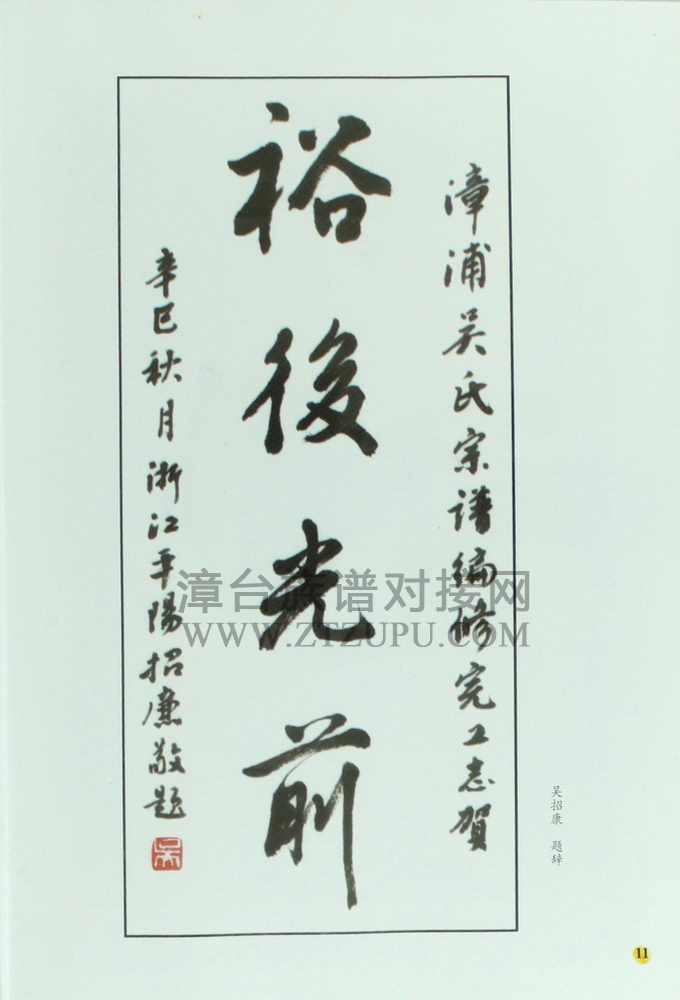 漳浦吴氏宗谱编修完工志賀
裕後光前
辛巳秋月浙江平陽招廉敬題
吴
漳台族谱对接网
WWW.ZTZUPU.COM
吴招康 题辞
11